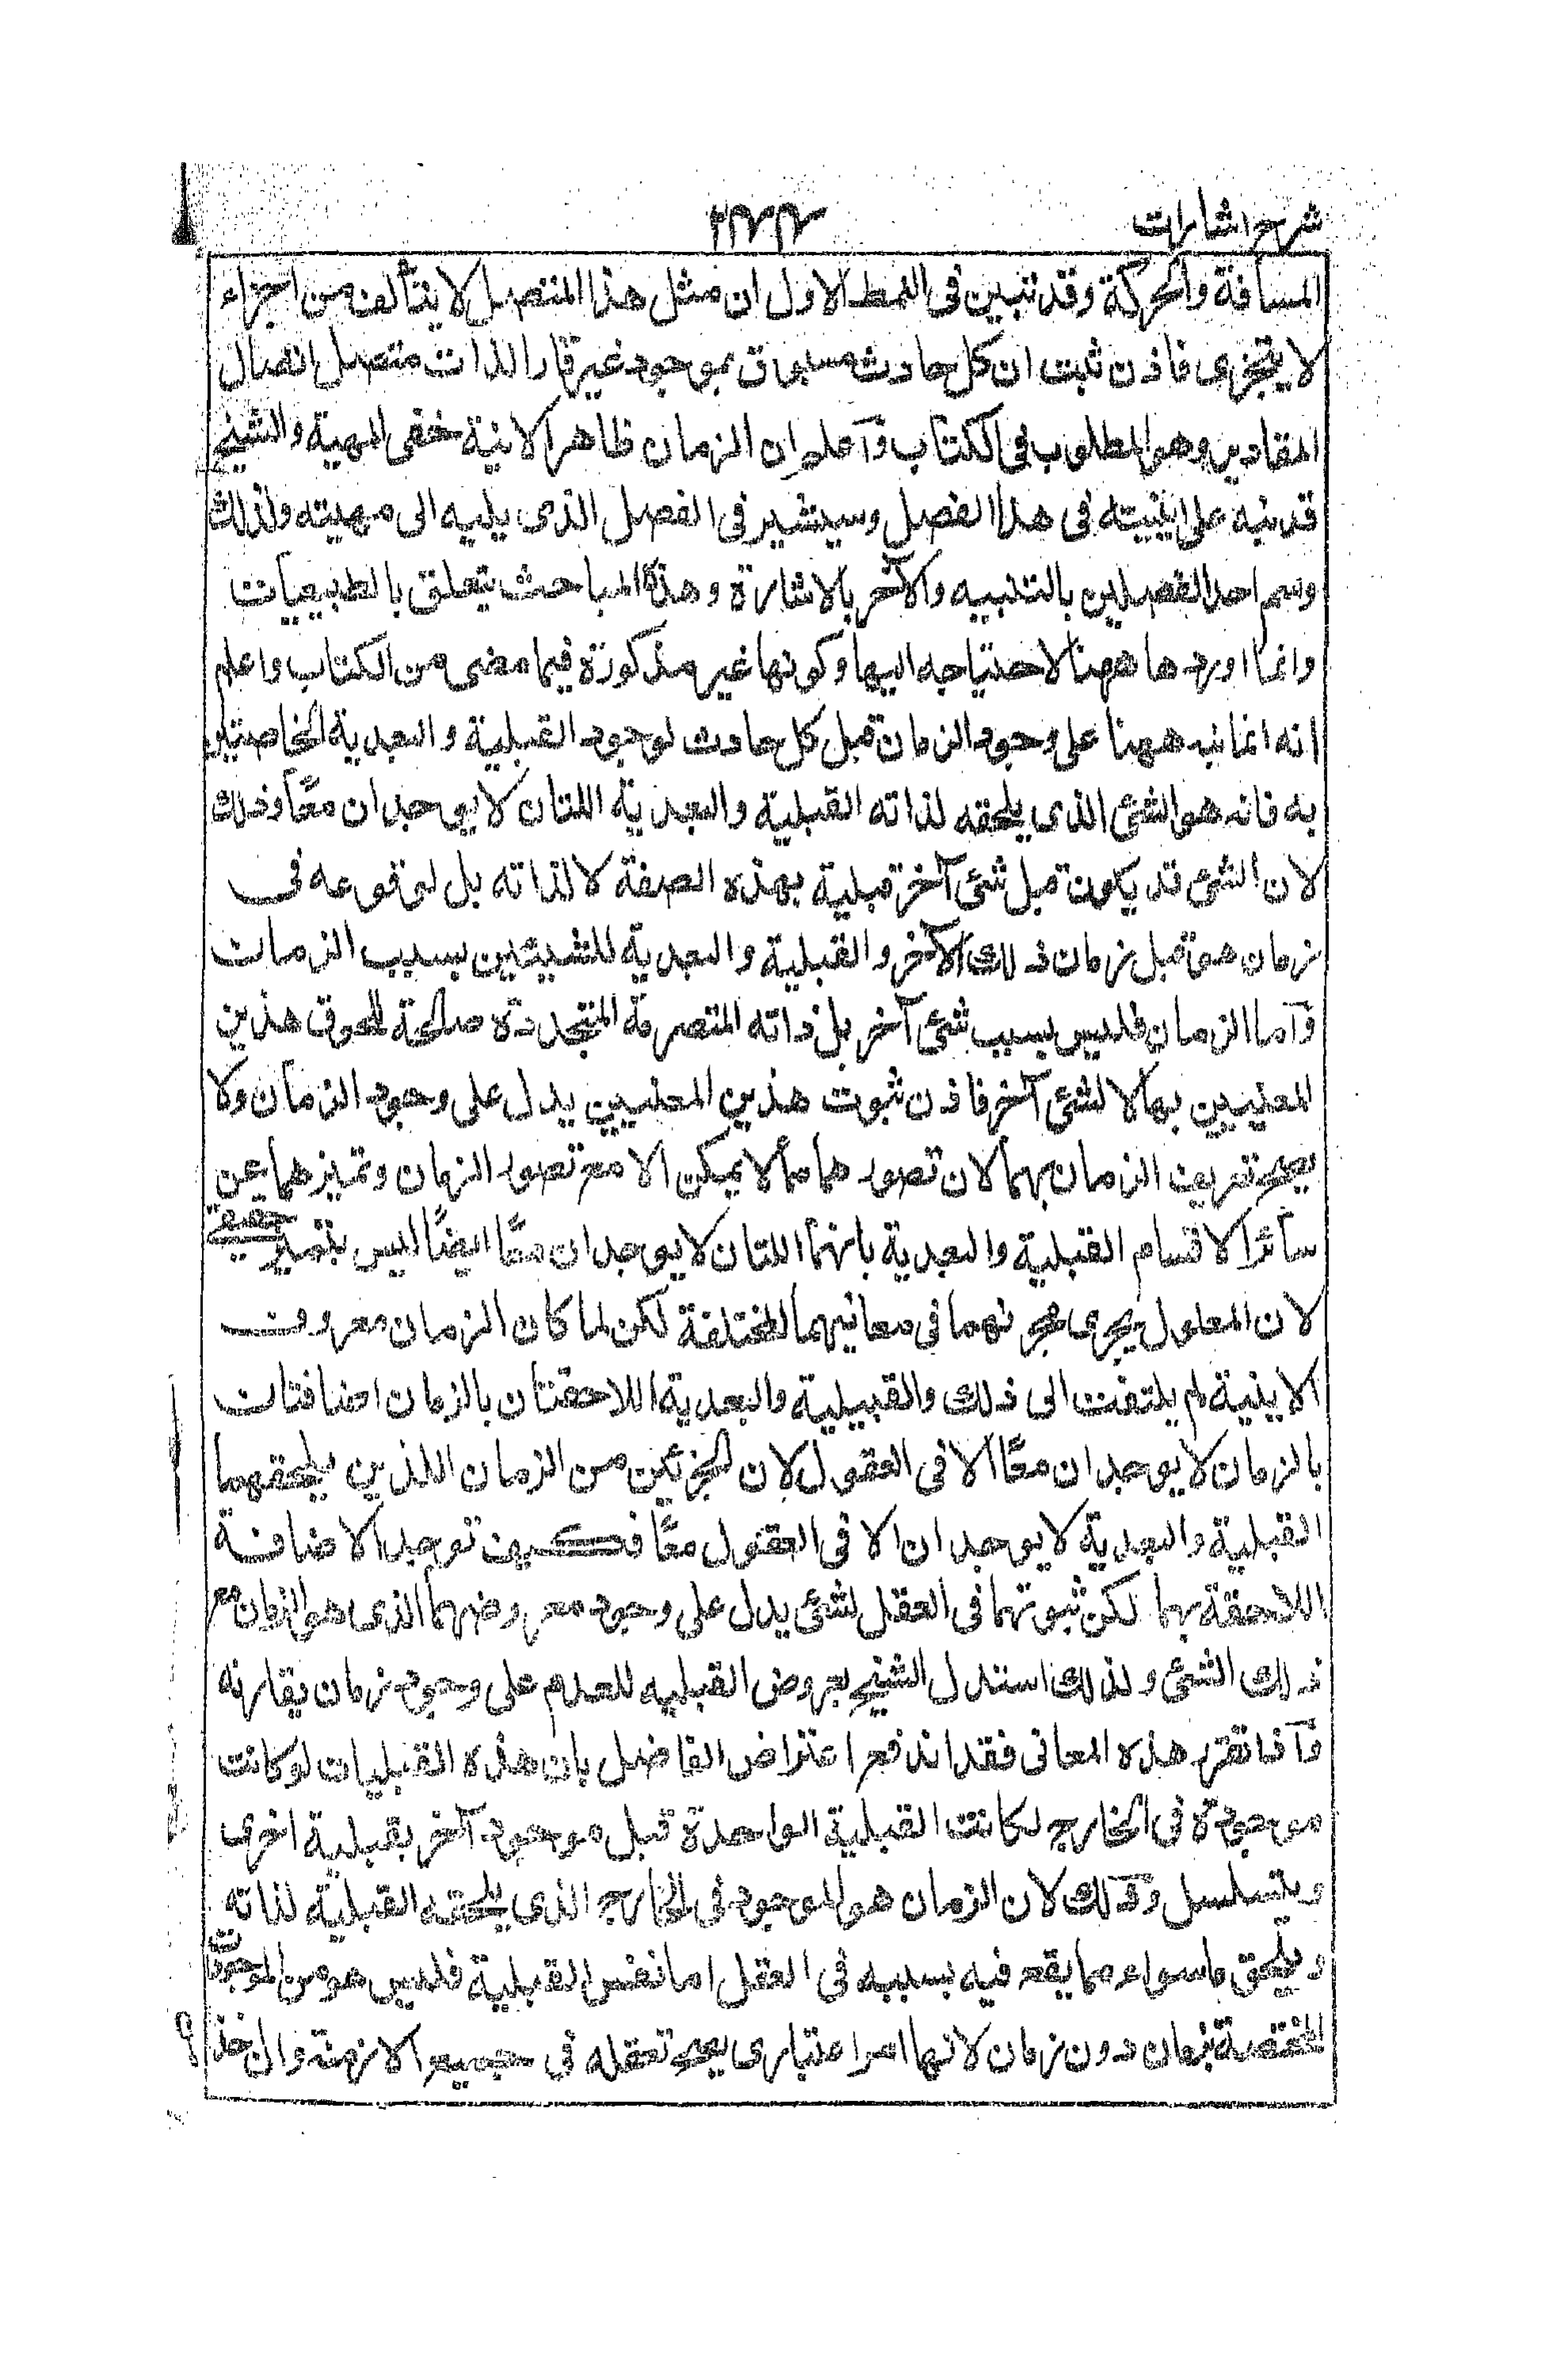 شرح اشارات
المسافة والحركة وقد تبين فى النمط الاول ان مثل هذا المتصل لا يتألف من اجزاء
لا يتجزى فاذن ثبت ان كل حادث مسبوق بموجود غير قار الذات متصل اتصال
المقادير وهو المطلوب فى الكتاب وآعلم ان الزمان ظاهر الانية خفى المهية والشيخ
قد نبه على اينيته فى هذا الفصل وسيشير فى الفصل الذى يليه الى مهيته ولذلك
وسم احد الفصلين بالتنبيه والآخر بالاشارة وهذه المباحث يتعلق بالطبيعيات
وانما اوردها ههنا لاحتياجه اليها وكونها غير مذكورة فيما مضى من الكتاب واعلم
انه انما نبه ههنا على وجود الزمان قبل كل حادث لوجود القبلية والبعدية الخاصيتين
به فانه هو الشئ الذى يلحقه لذاته القبلية والبعدية اللتان لا يوجدان معًا وذلك
لان الشئ قد يكون قبل شئ آخر قبلية بهذه الصفة لا لذاته بل لوقوعه فى
زمان هو قبل زمان ذلك الآخر والقبلية والبعدية للشيئين بسبب الزمان
وآما الزمان فليس بسبب شئ آخر بل ذاته المتصرمة المتجددة صالحة للحوق هذين
المعنيين بها لا لشئ آخر فاذن ثبوت هذين المعنيين يدل على وجود الزمان ولا
يصح تعريف الزمان بهما لان تصورهما مما لا يمكن الا مع تصور الزمان وتميزهما عن
سائر الاقسام القبلية والبعدية بانهما اللتان لا يوجدان معًا ايضًا ليس بتميز حقيقى
لان المعلول يجرى مجراهما فى معانيهما المختلفة لكن لما كان الزمان معروف
الاينية لم يلتفت الى ذلك والقبيلية والبعدية اللاحقتان بالزمان اضافتان
بالزمان لا يوجدان معًا الا فى العقول لان الجزئين من الزمان اللذين يلحقهما
القبلية والبعدية لا يوجدان الا فى العقول معًا فكيف توجد الاضافة
اللاحقة بهما لكن ثبوتهما فى العقل لشئ يدل على وجود معروضهما الذى هو الزمان مع
ذلك الشئ ولذلك استدل الشيخ بعروض القبليه للعدم على وجود زمان يقارنه
وآذا تقرر هذه المعانى فقد اندفع اعتراض الفاضل بان هذه القبليات لو كانت
موجودة فى الخارج لكانت القبلية الواحدة قبل موجود آخر بقبلية اخرى
ويتسلسل وذلك لان الزمان هو الموجود فى الخارج الذى يلحقه القبلية لذاته
ويلحق ما سواه مما يقع فيه بسببه فى العقل اما نفس القبلية فليس هو من الموجودات
المختصة بزمان دون زمان لانها امر اعتبارى يصح تعقله فى جميع الازمنة وان اخذ